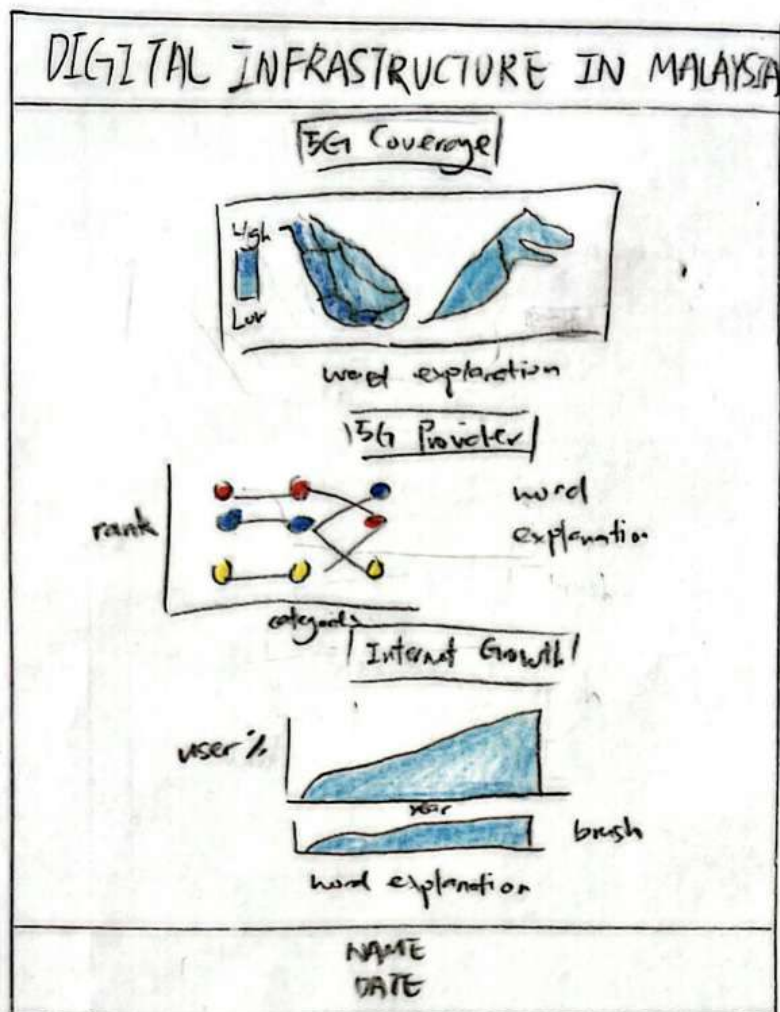 DIGITAL INFRASTRUCTURE IN MALAYSIA
5G Coverage
High
Low
word explanation
5G Provider
rank
word
explanation
Internet Growth
user %
year
brush
word explanation
NAME
DATE